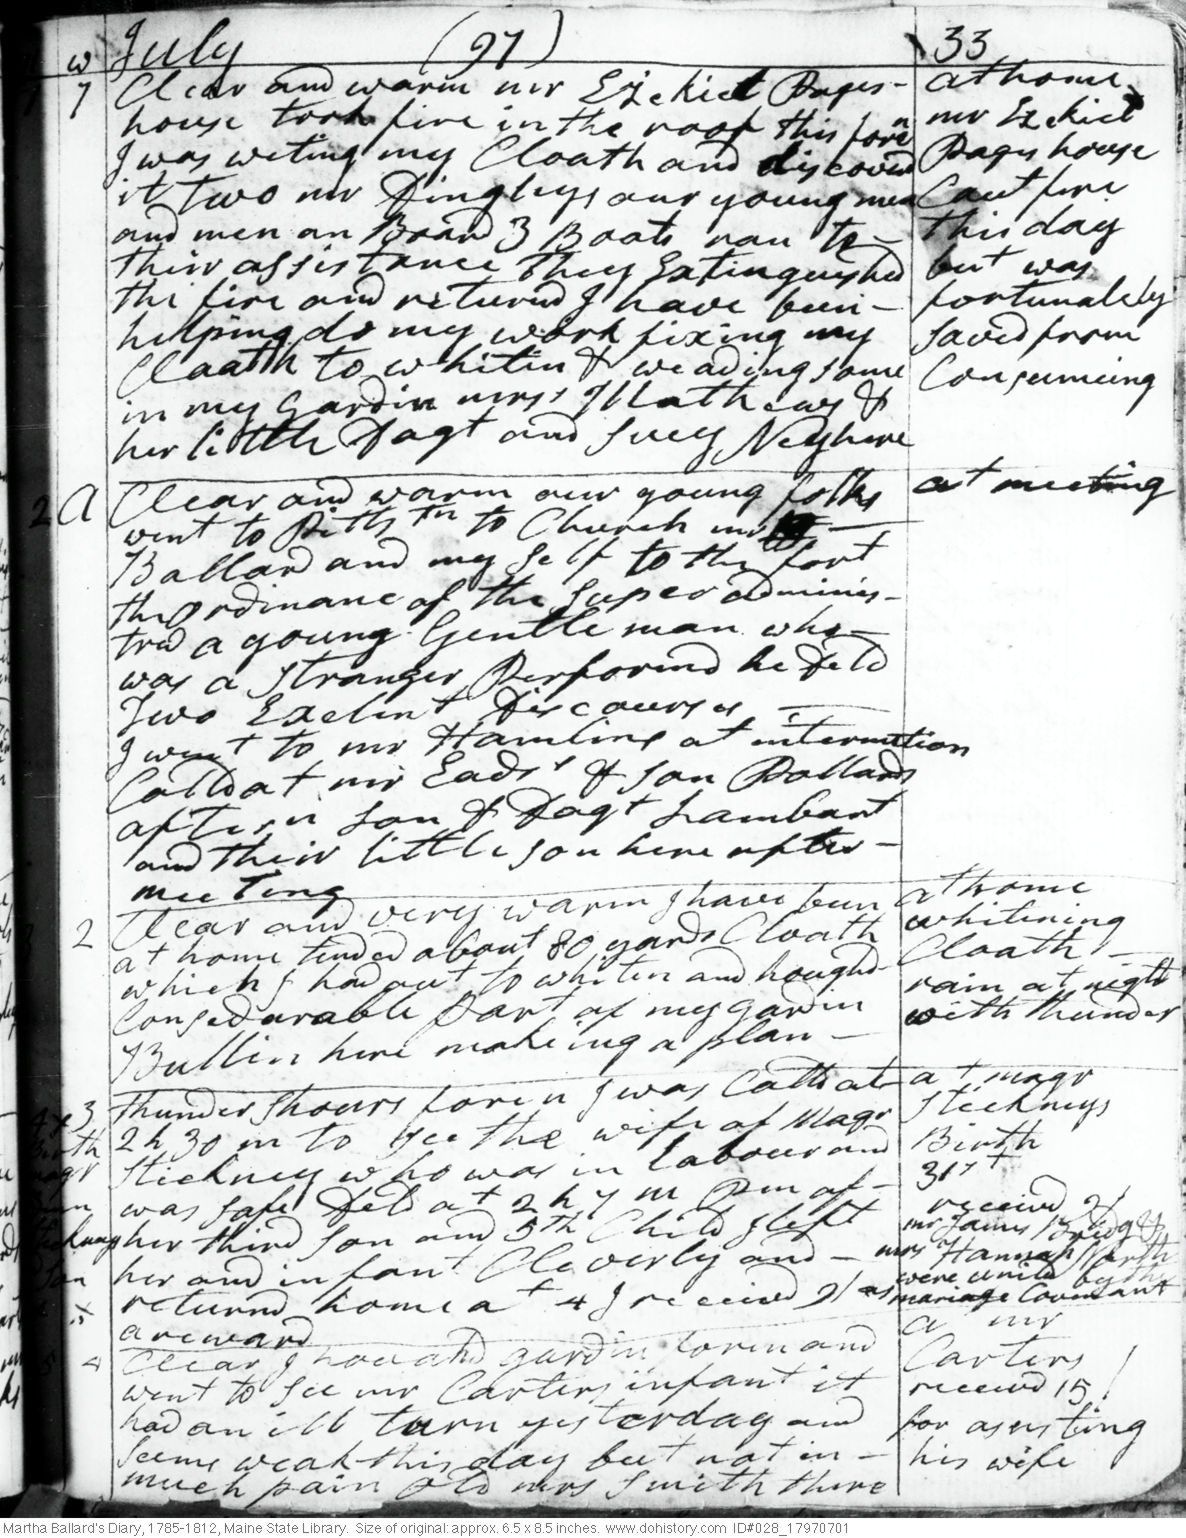 w July (97) 33
1 7 Clear and warm mr Ezekiel Pages-
house took fire in the roof this foren
I was weting my Cloath and discoverd
it two mr Dingleys our young men
and men on Board 3 Boats ran to -
thier assistance they Extinguished
the fire and returnd I have been -
helping do my work fixing my
Cloath to whitin & weading some
in my gardin mrs Mathews &
her little Dagt and Suey Neyhere
at home
mr Ezekiel
Pages house
Caut fire
this day
but was
fortunately
saved from
Consumeing
2 A Clear and warm our young folks
went to Pittstn to Church mr
Ballard and my self to the fort
the ordinance of the super adminis-
tred a young Gentleman who
was a stranger Performd he deld
Two Exelent Discourses
I went to mr Hamlins at intermition
Calld at mr Eads & son Pollards
aftern son & Dagt Lambart
and thier little son here after -
meeting
at meeting
3 2 Clear and very warm I have been
at home tended about 80 yards Cloath
which I had out to whiten and houghd
Consedarable Part of my gardin
Bullin here makeing a plan -
at home
whitening
Cloath -
rain at night
with thunder
4 x 3 thunder shours foren I was Calld at
2 h 30 m to see the wife of Magr
Stickney who was in labour and
was safe Deld at 2 h 7 m Pm of -
her third son and 5th Child I left
her and infant Cleverly and -
returnd home at 4 I received 9/ as
a reward
Birth
magr
Stickneys
son
x
at magr
Stickneys
Birth
31st
received 9/
mr James Bridg &
mrs Hannah North
were united by the
mariage Covenant
5 4 Clear I houd gardin foren and
went to see mr Carters infant it
had an ill turn yesterday and
seems weak this day but not in -
much pain old mrs Smith there
at mr
Carters
received 15/
for asisting
his wife
Martha Ballard's Diary, 1785-1812, Maine State Library. Size of original: approx. 6.5 x 8.5 inches. www.dohistory.com ID#028_17970701